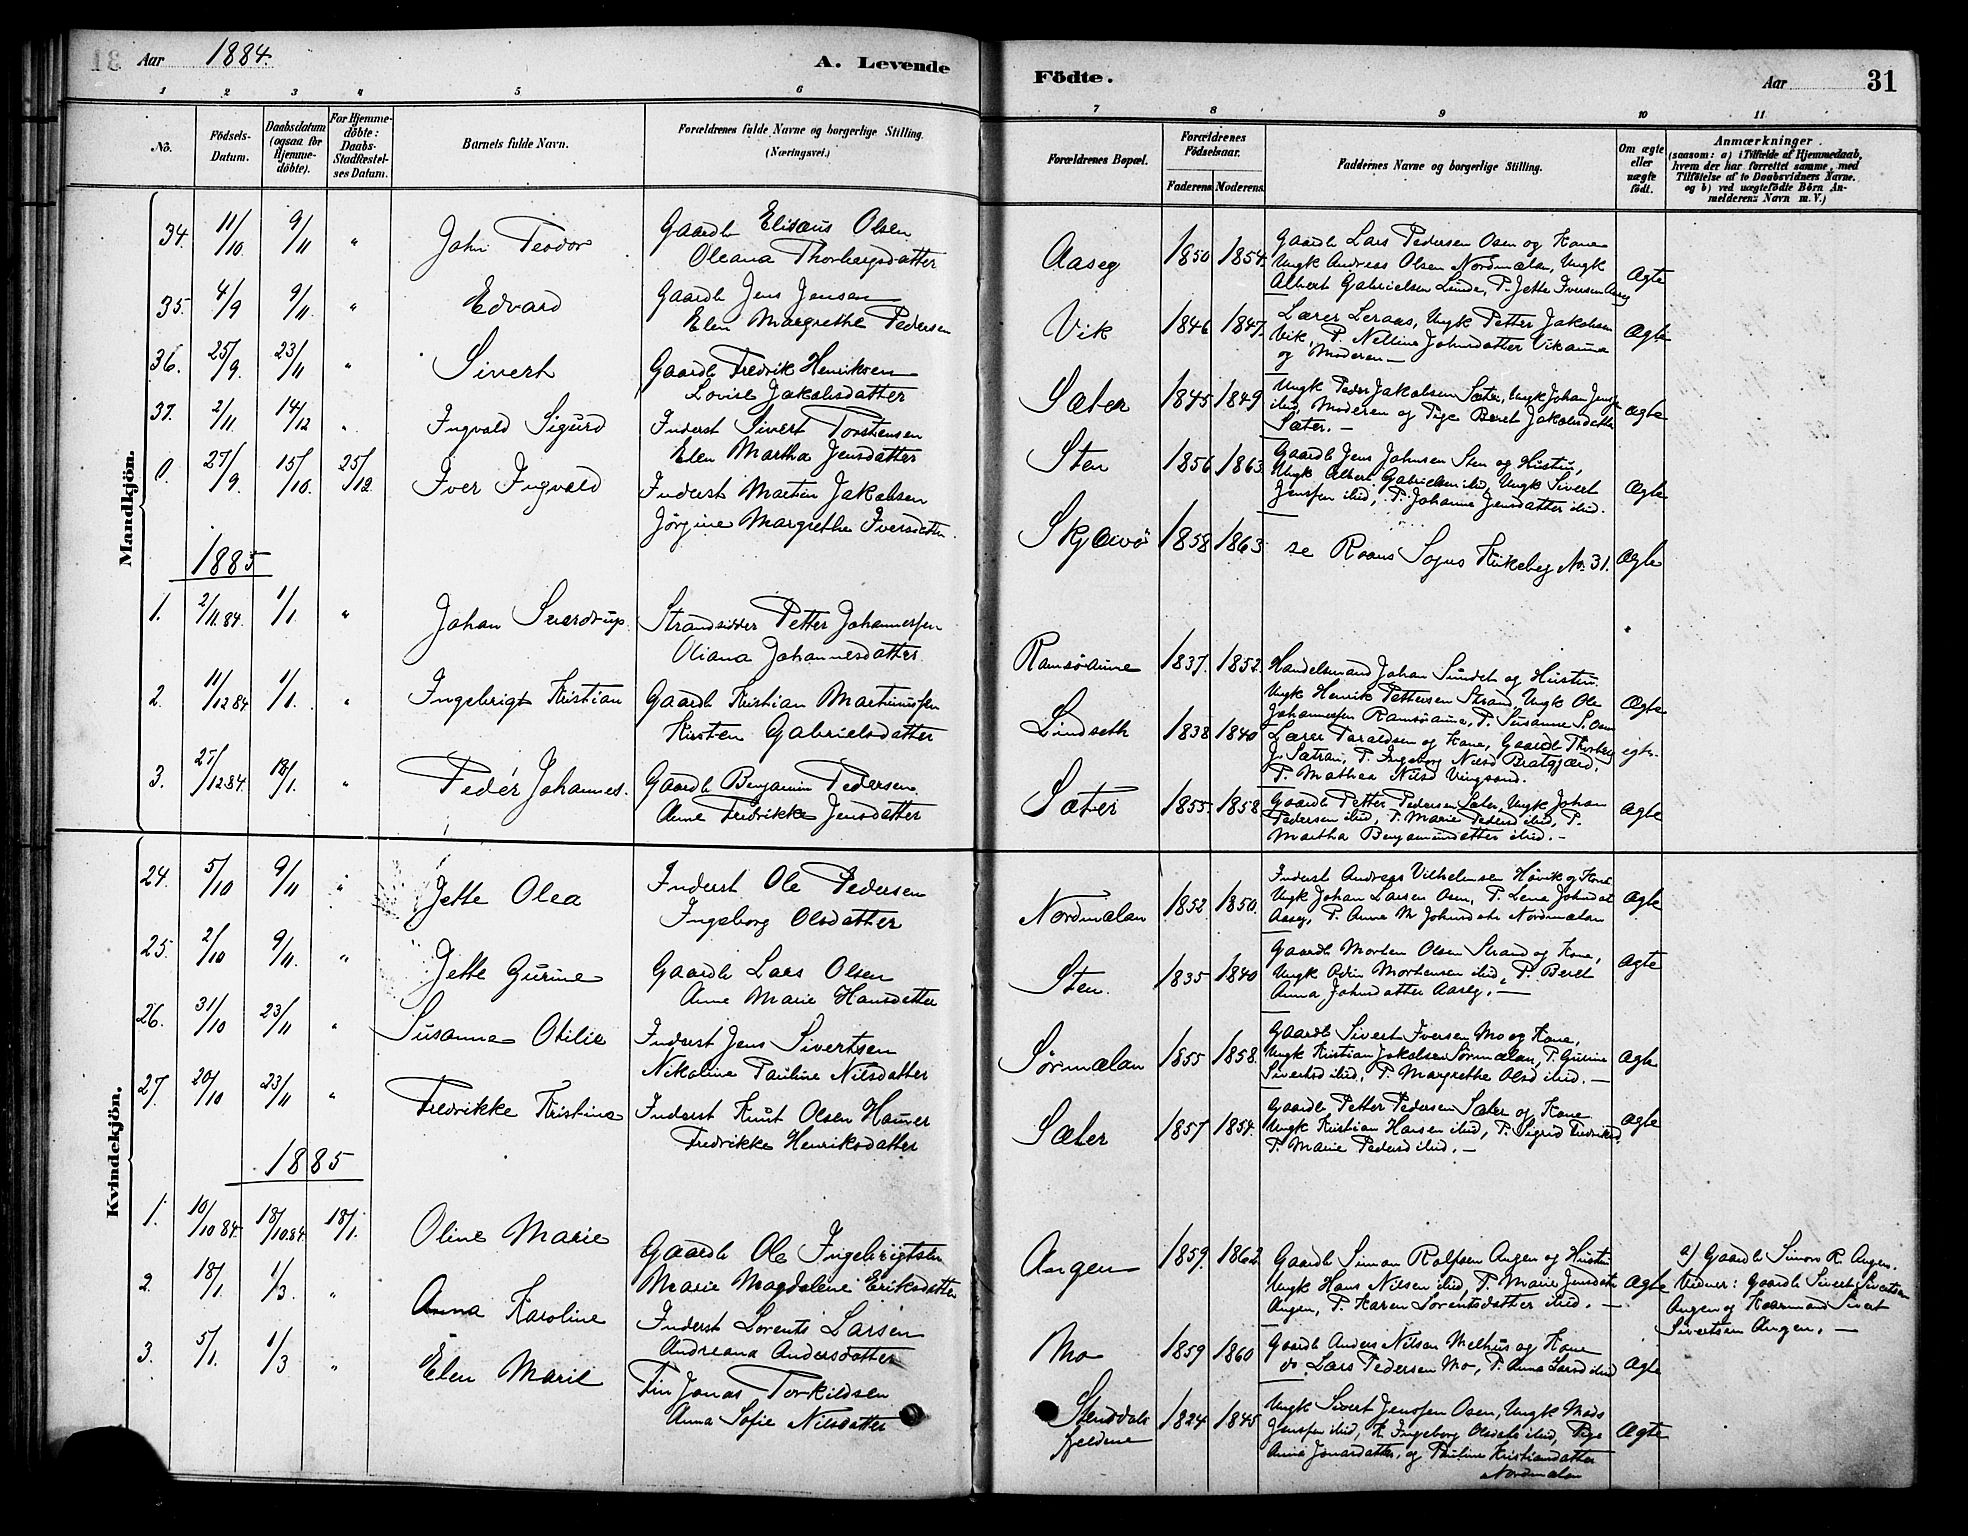 Aar 1884.
A. Levende
Födte.
Aar
31
1 2 3 4 5 6 7 8 9 10 11
No.
Födsels-Datum.
Daabsdatum (ogsaa for Hjemme-döbte).
For Hjemme-döbte: Daabs-Stadfæstel-ses Datum.
Barnets fulde Navn.
Forældrenes fulde Navne og borgerlige Stilling.
(Næringsvei.)
Forældrenes Bopæl.
Forældrenes Födselsaar.
Faderens. Moderens.
Faddernes Navne og borgerlige Stilling.
Om ægte eller uægte födt.
Anmærkninger.
(saasom: a) i Tilfælde af Hjemmedaab,
hvem der har forrettet samme, med
Tilföielse af to Daabsvidners Navne,
og b) ved uægtefödte Börn An-
melderens Navn m.V.)
Mandkjön.
34. 11/10 9/11 " John Teodor Gaardb Elisæus Olsen
Oleana Thorbergsdatter
Aaseg 1850 1854. Gaardb Lars Pedersen Osen og Kone
Ungk Andreas Olsen Nordmælan, Ungk
Albert Gabrielsen Linde, P. Jette Iversen Aaseg
Ægte
35. 4/9 9/11 " Edvard Gaardb Jens Jensen
Elen Margrethe Pedersen
Vik 1846 1847. Lærer Leraas, Ungk Petter Jakobsen
Vik, P. Nelline Johnsdatter Vikauna
og Moderen —
Ægte
36. 25/9 23/11 " Sivert Gaardb Fredrik Henriksen
Lovise Jakobsdatter
Sæter 1845 1849 Ungk Peder Jakobsen Sæter, Ungk Johan Jensen
ibid, Moderen og Pige Beret Jakobsdatter
Sæter. —
Ægte
37. 2/11 14/12 " Ingvald Sigurd Inderst Sivert Torstensen
Elen Martha Jensdatter
Sten 1856 1863 Gaardb Jens Johnsen Sten og Hustru,
Ungk Albert Gabrielsen ibid, Ungk Sivert
Jenssen ibid, P. Johanna Jensdatter ibid.
Ægte
0. 27/9 15/10. 25/12 Iver Ingvald Inderst Martin Jakobsen
Jørgine Margrethe Iversdatter.
Skjævø 1858 1863 se Roans Sogns Kirkebog No. 31. Ægte
1885
1. 2/11.84. 1/1. " Johan Sverdrup. Strandsidder Petter Johannessen
Oliana Johannesdatter
Ramsøaune 1837. 1852 Handelsmand Johan Sundet og Hustru
Ungk Henrik Pettersen Strand, Ungk Ole
Johannessen Ramsøaune, P. Susanna
Ægte
2. 11/12 84 1/1. " Ingebrigt Kristian Gaardb Kristian Martinussen
Kirsten Gabrielsdatter
Lindseth 1838 1840 Lærer Taraldsen og Kone, Gaardb Thorberg
J. Sætran, P. Ingeborg Nilsd Bratgjærd,
P. Mathea Nilsd Vingsand.
3. 27/12 84. 18/1. " Peder Johannes. Gaardb Benjamin Pedersen
Anne Fredrikke Jensdatter
Sæter 1855. 1858 Gaardb Petter Pedersen Sæter, Ungk Johan
Pedersen ibid, P. Marie Pedersd ibid, P.
Martha Benjaminsdatter ibid. —
Ægte
Kvindekjön.
24. 5/10 9/11 " Jette Olea Inderst Ole Pedersen
Ingeborg Olsdatter
Nordmælan 1852 1850. Inderst Andreas Vilhelmsen Høvik og Kone
Ungk Johan Larsen Osen, P. Lena Johnsdt
Aaseg, P. Anna M Johnsdatr Nordmælan
Ægte
25. 2/10 9/11. " Jette Gurine Gaardb Lars Olsen
Anne Marie Hansdatter
Sten. 1835 1840 Gaardb Morten Olsen Strand og Kone,
Ungk Odin Mortensen ibid, P. Beret
Anna Johnsdatter Aaseg. —
Ægte
26. 31/10 23/11 " Susanna Otilie Inderst Jens Sivertsen
Nikoline Pauline Nilsdatter
Sørmælan 1855 1858. Gaardb Sivert Iversen Mo og Kone,
Ungk Kristian Jakobsen Sørmælan, P. Gurine
Sivertsd ibid, P. Margrethe Olsd ibid. —
Ægte
27. 20/10 23/11 " Fredrikke Kristine Inderst Knut Olsen Hauner
Fredrikke Henriksdatter
Sæter 1857 1854. Gaardb Petter Pedersen Sæter og Kone
Ungk Kristian Hansen ibid, P. Sigrid Fredriksd.
P. Marie Pedersd ibid. —
Ægte
1885
1. 10/10 84. 18/10.84 18/1. Oline Marie Gaardb Ole Ingebrigtsen
Marie Magdalene Eriksdatter
Angen 1859. 1862 Gaardb Simon Rolfsen Angen og Hustru
Ungk Hans Nilsen ibid, P. Marie Jensdatr
Angen, P. Karen Lorentsdatter ibid. —
Ægte
a) Gaardb Simon R. Angen.
Vidner: Gaardb Sivert Sivertsen
Angen og Kaarmand Sivert
Sivertsen Angen. —
2. 18/1. 1/3. " Anna Karoline Inderst Lorents Larsen
Andreana Andersdatter
Mo 1859 1860 Gaardb Anders Nilsen Melhus og Kone
do. Lars Pedersen Mo, P. Anna Larsd ibid
Ægte
3. 5/1. 1/3 " Elen Marie Fin Jonas Torkildsen
Anna Sofie Nilsdatter
Stensdals fjeldene 1824 1845 Ungk Sivert Jenssen Osen, Ungk Mads
Jenssen ibid, K Ingeborg Olsdatr ibid, Pige
Anne Jonasdatter, og Pauline Kristiansdatter
Nordmælan
Ægte